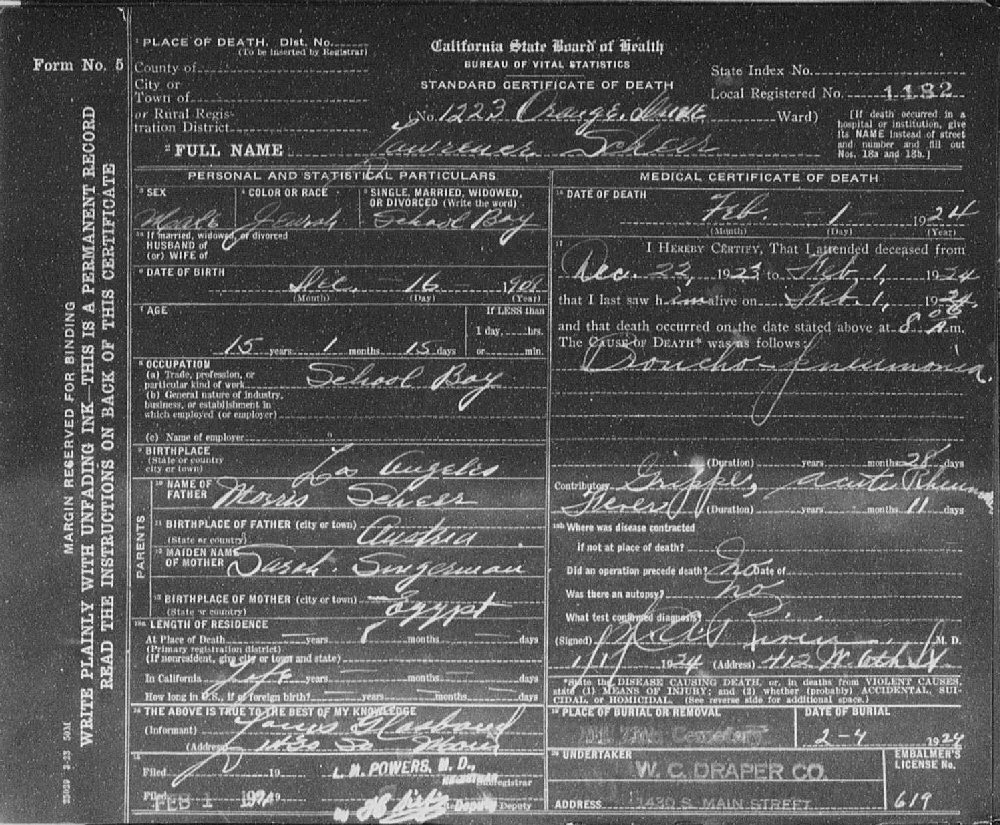 Form No. 5
MARGIN RESERVED FOR BINDING
WRITE PLAINLY WITH UNFADING INK - THIS IS A PERMANENT RECORD
READ THE INSTRUCTIONS ON BACK OF THIS CERTIFICATE
California State Board of Health
BUREAU OF VITAL STATISTICS
STANDARD CERTIFICATE OF DEATH
State Index No.
Local Registered No. 1182
1 PLACE OF DEATH, Dist. No.
(To be inserted by Registrar)
County of
City or
Town of
or Rural Regis-
tration District
No. 1223 Orange Ward)
[If death occurred in a
hospital or institution, give
its NAME instead of street
and number and fill out
Nos. 18a and 18b.]
2 FULL NAME Lawrence Scheer
PERSONAL AND STATISTICAL PARTICULARS
3 SEX Male
4 COLOR OR RACE Jewish
5 SINGLE, MARRIED, WIDOWED,
OR DIVORCED (Write the word)
School Boy
5a If married, widowed, or divorced
HUSBAND of
(or) WIFE of
6 DATE OF BIRTH
Dec. 16 1908
(Month) (Day) (Year)
7 AGE
If LESS than
1 day, hrs.
or min.
15 years 1 months 15 days
8 OCCUPATION
(a) Trade, profession, or
particular kind of work School Boy
(b) General nature of industry,
business, or establishment in
which employed (or employer)
(c) Name of employer
9 BIRTHPLACE
(State or country
city or town) Los Angeles
PARENTS
10 NAME OF
FATHER Morris Scheer
11 BIRTHPLACE OF FATHER (city or town)
(State or country) Austria
12 MAIDEN NAME
OF MOTHER Sarah Singerman
13 BIRTHPLACE OF MOTHER (city or town)
(State or country) Egypt
LENGTH OF RESIDENCE
At Place of Death years months days
(Primary registration district)
(If nonresident, give city or town and state)
In California Life years months days
How long in U.S., if of foreign birth? years months days
14 THE ABOVE IS TRUE TO THE BEST OF MY KNOWLEDGE
(Informant) Louis Glasband
(Address) 1430 So. Main
15
Filed 19
L. M. POWERS, M. D.,
REGISTRAR
Subregistrar
Filed FEB 1 1924
Deputy
MEDICAL CERTIFICATE OF DEATH
16 DATE OF DEATH
Feb. 1 1924
(Month) (Day) (Year)
17
I HEREBY CERTIFY, That I attended deceased from
Dec. 22, 1923 to Feb 1, 1924
that I last saw him alive on Feb. 1, 1924
and that death occurred on the date stated above at 8 A.m.
The CAUSE OF DEATH* was as follows:
Broncho-pneumonia
(Duration) years months 28 days
Contributory Grippe, acute Rheum
Fever (Duration) years months 11 days
18b Where was disease contracted
if not at place of death?
Did an operation precede death? No Date of
Was there an autopsy? No
What test confirmed diagnosis?
(Signed) M. D.
1924 (Address) 412 W. 6th St.
*State the DISEASE CAUSING DEATH, or, in deaths from VIOLENT CAUSES,
state (1) MEANS OF INJURY; and (2) whether (probably) ACCIDENTAL, SUI-
CIDAL, or HOMICIDAL. (See reverse side for additional space.)
19 PLACE OF BURIAL OR REMOVAL
Cemetery
DATE OF BURIAL
2-4 1924
20 UNDERTAKER
W. C. DRAPER CO.
ADDRESS 1430 S. MAIN STREET
EMBALMER'S
LICENSE No.
619